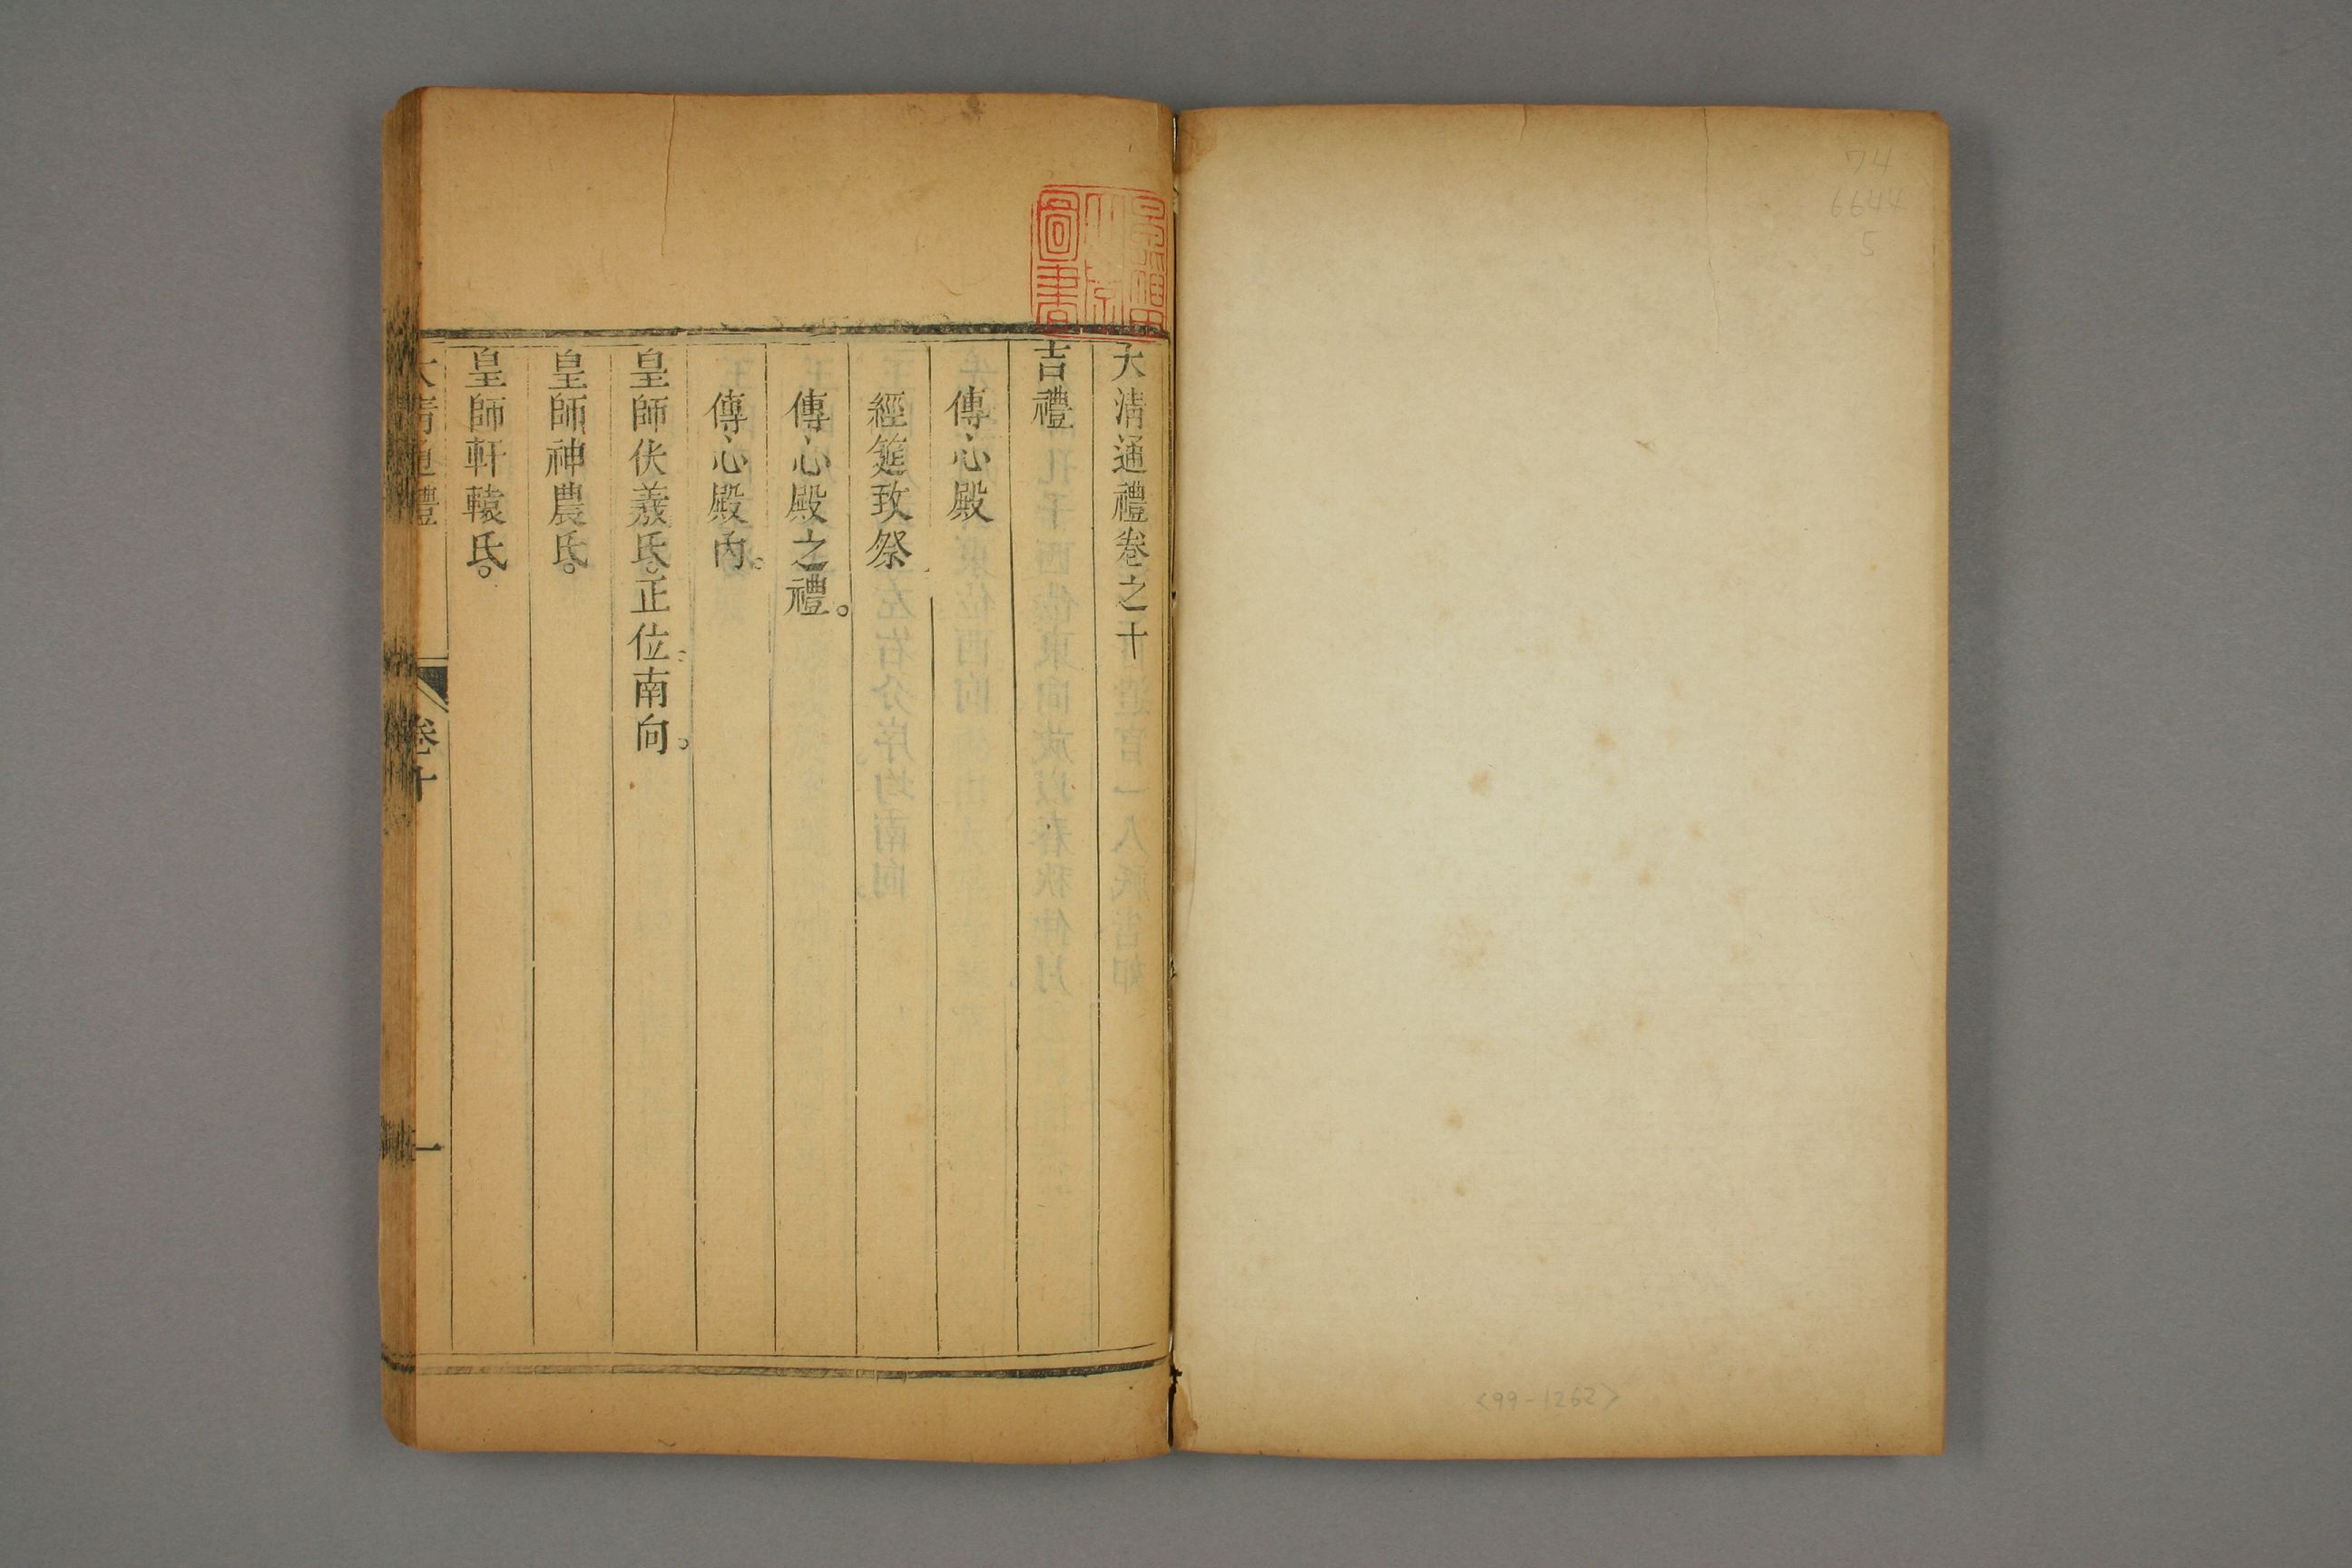 74
6644
5
<99-1262>
大淸通禮卷之十
吉禮
傳心殿
經筵致祭
傳心殿之禮。
傳心殿內。
皇師伏羲氏。正位南向。
皇師神農氏。
皇師軒轅氏。
大淸通禮
卷十
一
圖書